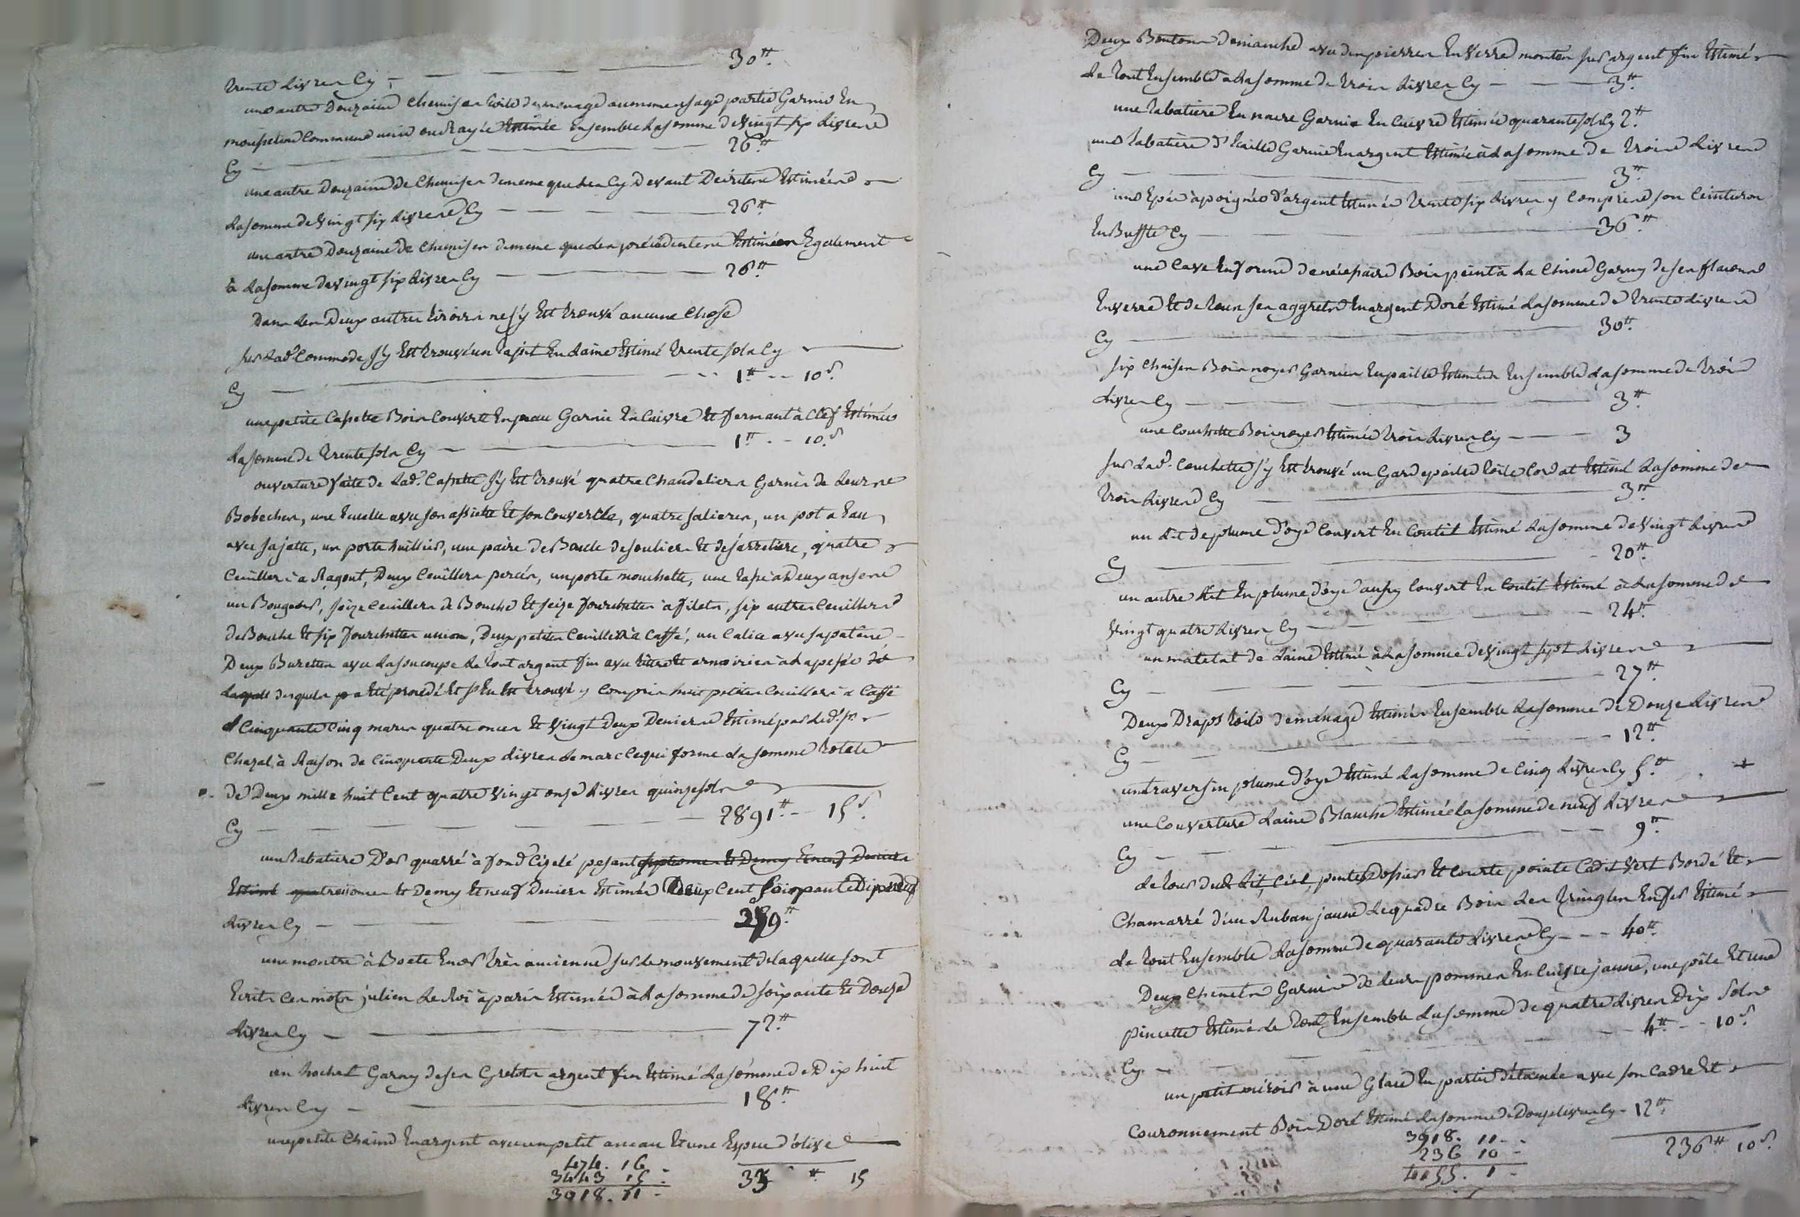 30.tt
trente livres Cy
une autre Douzaine chemises toile de menage au meme usage partie Garnie En
mousseline Commune unie ou Rayée Estimée Ensemble la somme de vingt six livres
Cy 26.tt
une autre Douzaine de Chemises de meme que les Cy Devant Décrites Estimées
la somme de vingt six livres Cy 26.tt
une autre Douzaine de Chemises de meme que les précédentes Estimées Egalement
à la somme de vingt six livres Cy 26.tt
Dans les Deux autres tiroirs ne s'y Est trouvé aucune Chose
sur lad.e Commode s'y Est trouvé un tapit En laine Estimé trente sols Cy
Cy 1.tt 10.s
une petite Cassette Bois Couverte En peau Garnie En Cuivre Et fermant à Clef Estimée
la somme de trente sols Cy 1.tt 10.s
ouverture faite de lad.e Cassette s'y Est trouvé quatre Chandeliers Garnis de leurs
Bobeches, une Ecuelle avec son assiette Et son Couvercle, quatre salieres, un pot a Eau
avec sa jatte, un porte huillier, une paire de Boucle de soulier Et de jarretiere, quatre
Cuilliers a Ragout, Deux Cuilliers percés, un porte mouchette, une tasse a Deux anses
un Bougeoir, seize Cuilliers de Bouche Et seize fourchettes à filets, six autres Cuilliers
de Bouche Et six fourchettes unies, Deux petites Cuilliers à Caffé, un Calice avec sa patène
Deux Burettes avec la soucoupe le tout argent fin avec armoiries à la pesée
desquels a Eté procédé Et s'En Est trouvé y Compris huit petites Cuilliers a Caffé
Cinquante Cinq marcs quatre onces Et vingt Deux Deniers Estimé par led. s.r
Chazal à Raison de Cinquante Deux livres le marc Ce qui forme la somme totale
de Deux mille huit Cent quatre vingt onze livres quinze sols
Cy 2891.tt 15.s
une tabatiere D'or quarré à fond Cizelé pesant sept onces Et Demy Et neuf Deniers
Estimé quatre onces Et Demy Et neuf Deniers Estimée Deux Cent soixante Dix neuf
livres Cy 279.tt
une montre à Boete En or très ancienne sur le mouvement de laquelle sont
Ecrits Ces mots julien le Roi à paris Estimée à la somme de soixante Et Douze
livres Cy 72.tt
un hochet Garny de ses Grelots argent fin Estimé la somme de Dix huit
livres Cy 18.tt
une petite Chaine En argent avec un petit anneau Et une Espece d'olive
474. 16
3443 15
3918. 11
15
Deux Boutons de manche avec des pierres En verre montés sur argent fin Estimé
le tout Ensemble a la somme de trois livres Cy 3.tt
une tabatiere En nacre Garnie En Cuivre Estimée quarante sols Cy 2.tt
une tabatiere d'Ecaille Garnie En argent Estimée à la somme de trois livres
Cy 3.tt
une Epée à poignée d'argent Estimée trente six livres y Compris son Ceinturon
En Buffle Cy 36.tt
une Cave En forme de nécessaire Bois peint à la Chine Garny de ses flacons
En verre Et de tous ses aggrets En argent Doré Estimé la somme de trente livres
Cy 30.tt
six Chaises Bois noyer Garnies En paille Estimées Ensemble la somme de trois
livres Cy 3.tt
une Couchette Bois noyer Estimée trois livres Cy 3
sur lad.e Couchette s'y Est trouvé un Garde paille toile Cordat Estimé la somme de
trois livres Cy 3.tt
un lit de plume d'oye Couvert En Coutil Estimé la somme de vingt livres
Cy 20.tt
un autre lit En plume d'oye aussy Couvert En Coutil Estimé à la somme de
vingt quatre livres Cy 24.tt
un matelat de laine Estimé à la somme de vingt sept livres
Cy 27.tt
Deux Draps toile de ménage Estimés Ensemble la somme de Douze livres
Cy 12.tt
un traversin plume d'oye Estimé la somme de Cinq livres Cy 5.tt
une Couverture laine Blanche Estimée la somme de neuf livres
Cy 9.tt
le tour du lit, Ciel, pentes, Dossier Et Courte pointe Cadis vert Bordé Et
Chamarré d'un Ruban jaune le quadre Bois les tringles En fer Estimé
le tout Ensemble la somme de quarante livres Cy 40.tt
Deux Chenets Garnis de leurs pommes En Cuivre jaune, une pêle Et une
pincette Estimé le tout Ensemble la somme de quatre livres Dix sols
Cy 4.tt 10.s
un petit miroir à une Glace En partie détamée avec son Cadre Et
Couronnement Bois Doré Estimé la somme de Douze livres Cy 12.tt
3918. 11
236 10
4155. 1
236.tt 10.s